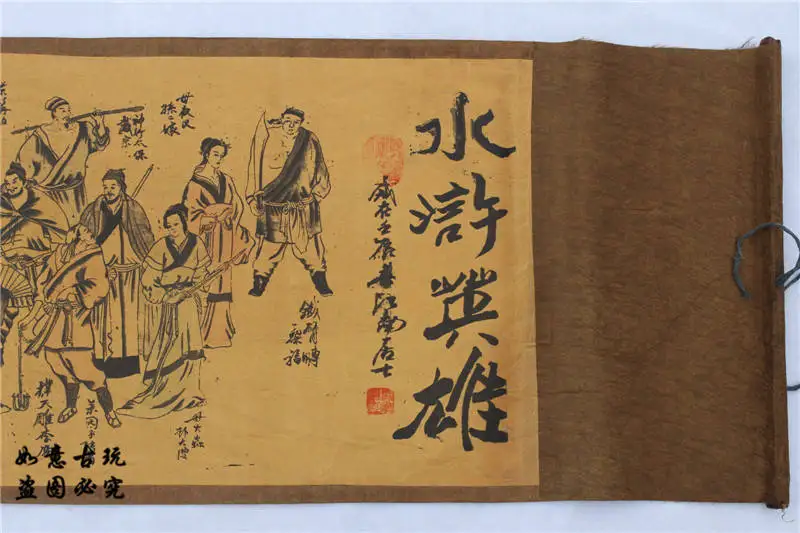 水滸英雄
江南居士
鐵臂膊
蔡福
母夜叉
孫二娘
神行太保
戴宗
母大蟲
撲天雕李應
菜園子
如意古玩
盗图必究